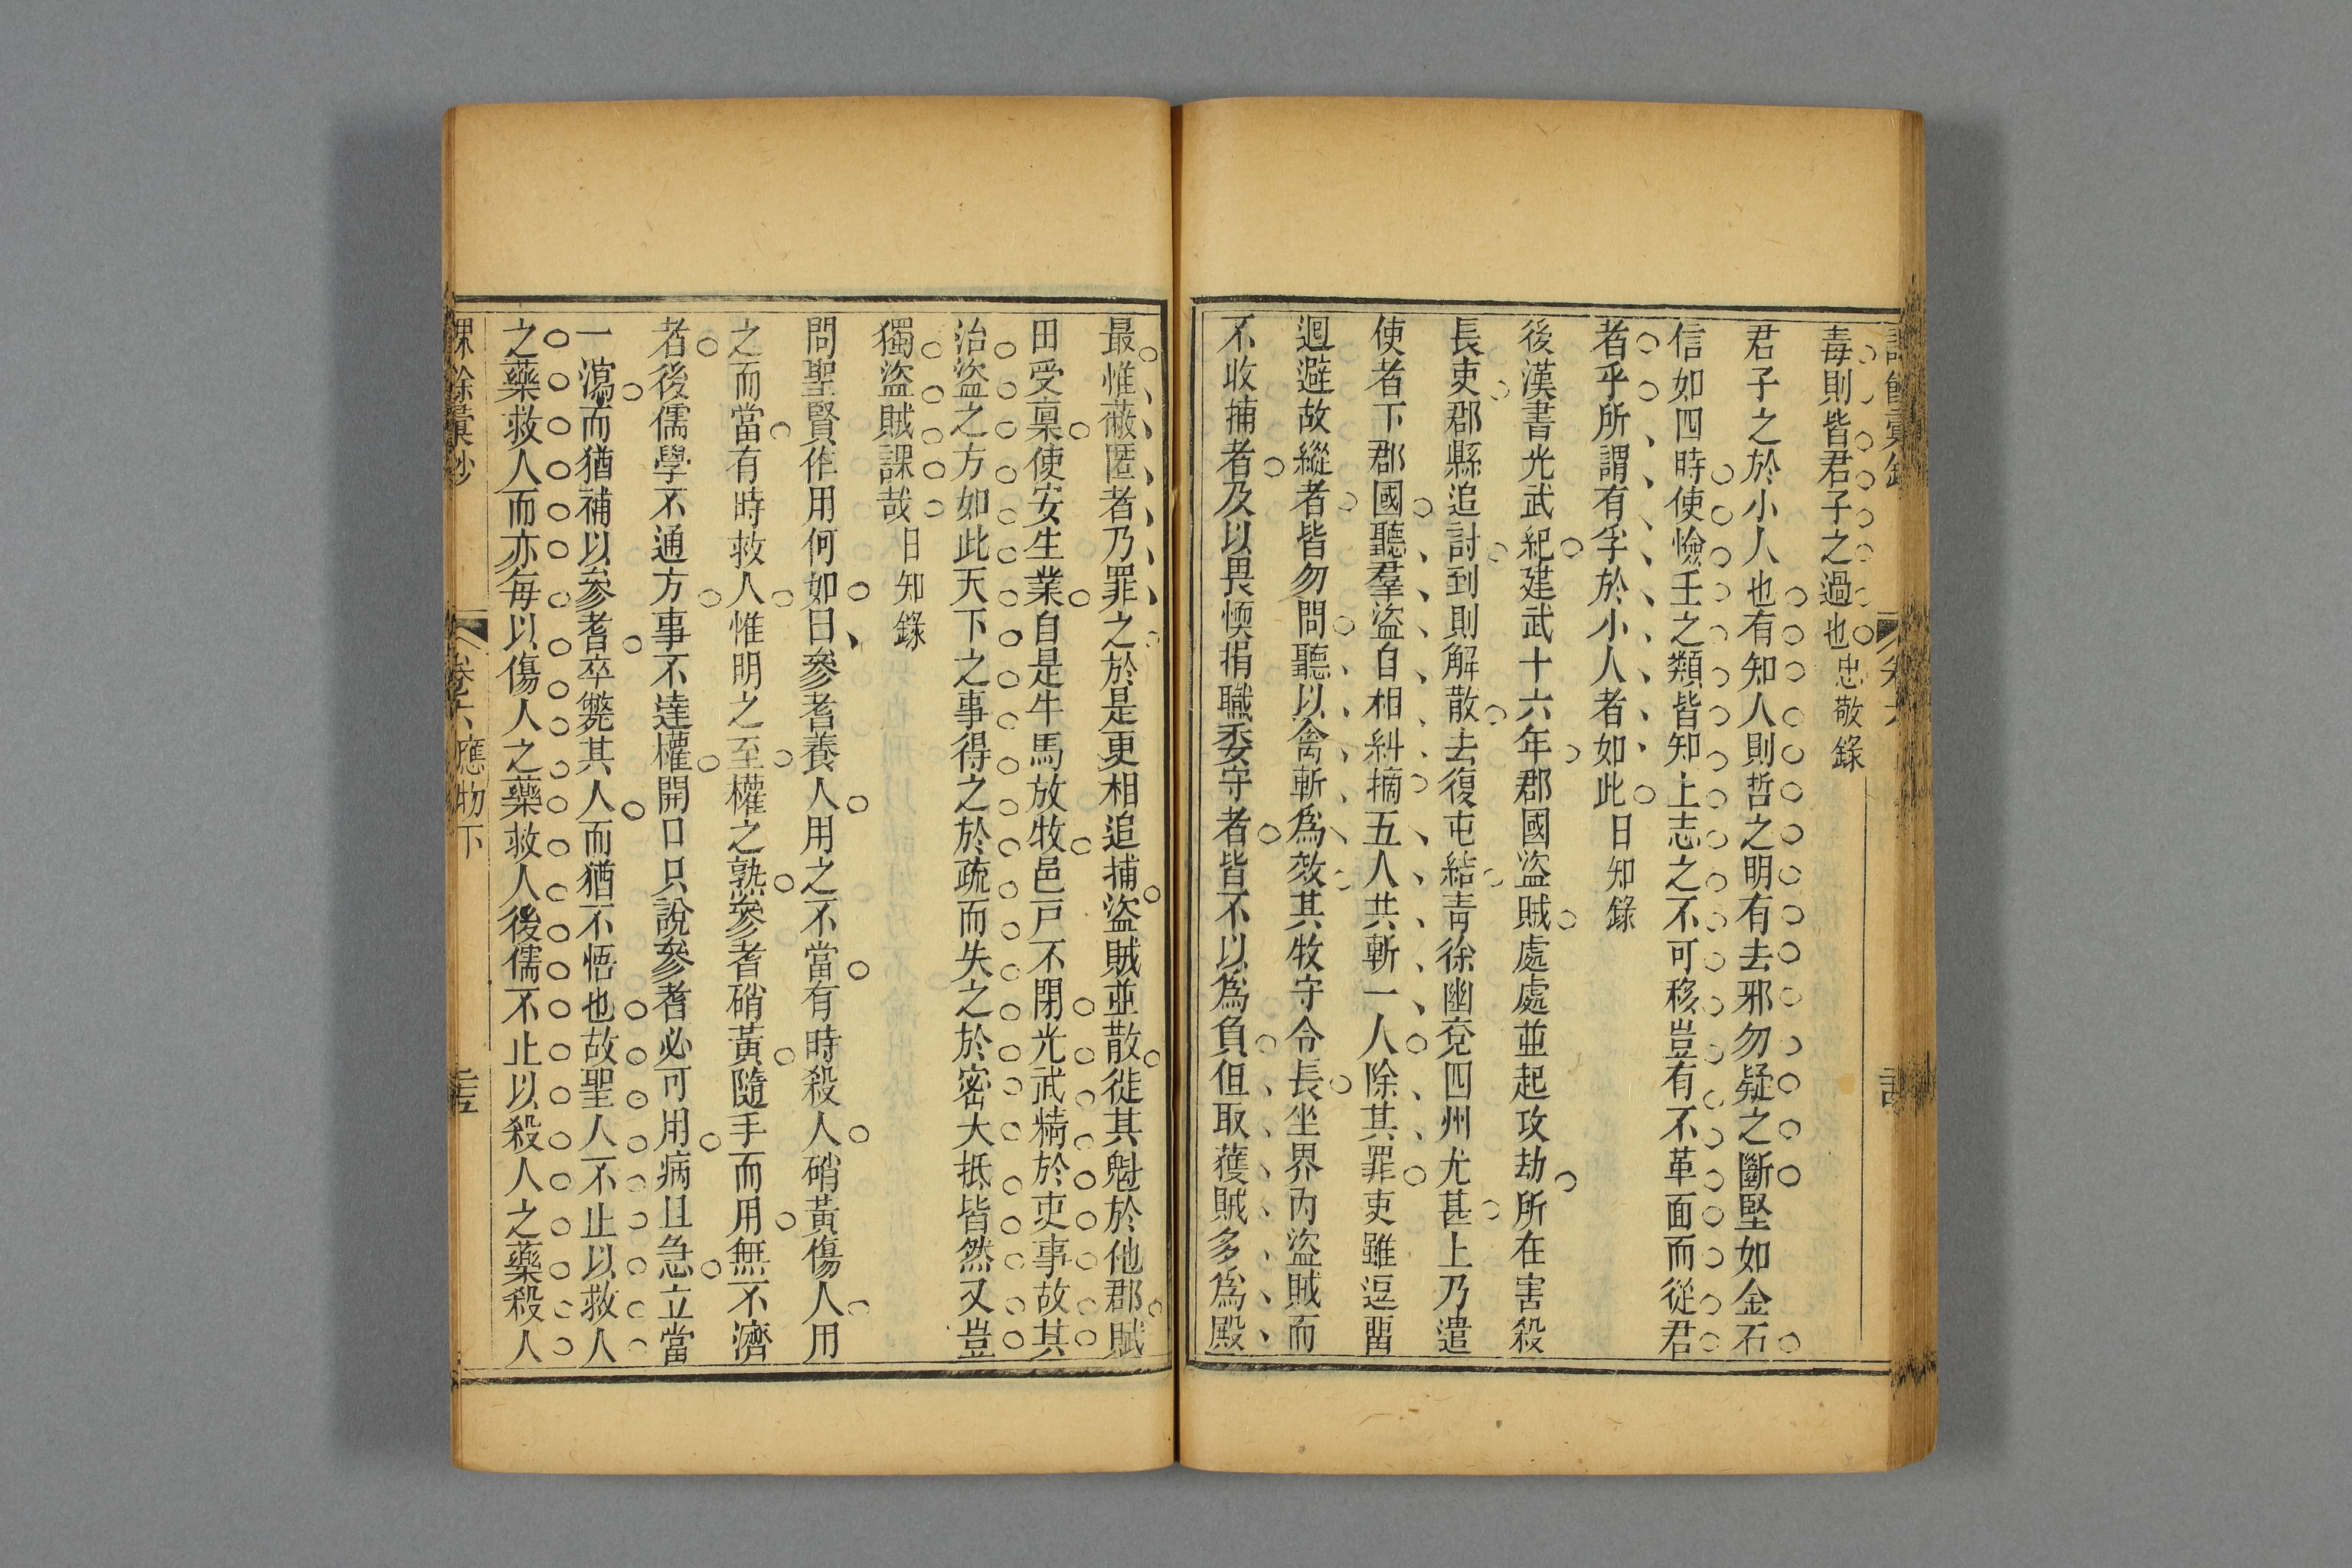 毒則皆君子之過也忠敬錄
君子之於小人也有知人則哲之明有去邪勿疑之斷堅如金石
信如四時使憸壬之類皆知上志之不可移豈有不革面而從君
者乎所謂有孚於小人者如此日知錄
後漢書光武紀建武十六年郡國盜賊處處並起攻劫所在害殺
長吏郡縣追討到則解散去復屯結靑徐幽兗四州尤甚上乃遣
使者下郡國聽羣盜自相糾摘五人共斬一人除其罪吏雖逗畱
迴避故縱者皆勿問聽以禽斬爲效其牧守令長坐界內盜賊而
不收捕者及以畏愞捐職委守者皆不以爲負但取獲賊多爲殿
最惟蔽匿者乃罪之於是更相追捕盜賊並散徙其魁於他郡賦
田受稟使安生業自是牛馬放牧邑戸不閉光武精於吏事故其
治盜之方如此天下之事得之於疏而失之於密大抵皆然又豈
獨盜賊課哉日知錄
問聖賢作用何如曰參耆養人用之不當有時殺人硝黃傷人用
之而當有時救人惟明之至權之熟參耆硝黃隨手而用無不濟
者後儒學不通方事不達權開口只說參耆必可用病且急立當
一瀉而猶補以參耆卒斃其人而猶不悟也故聖人不止以救人
之藥救人而亦每以傷人之藥救人後儒不止以殺人之藥殺人
卷六應物下